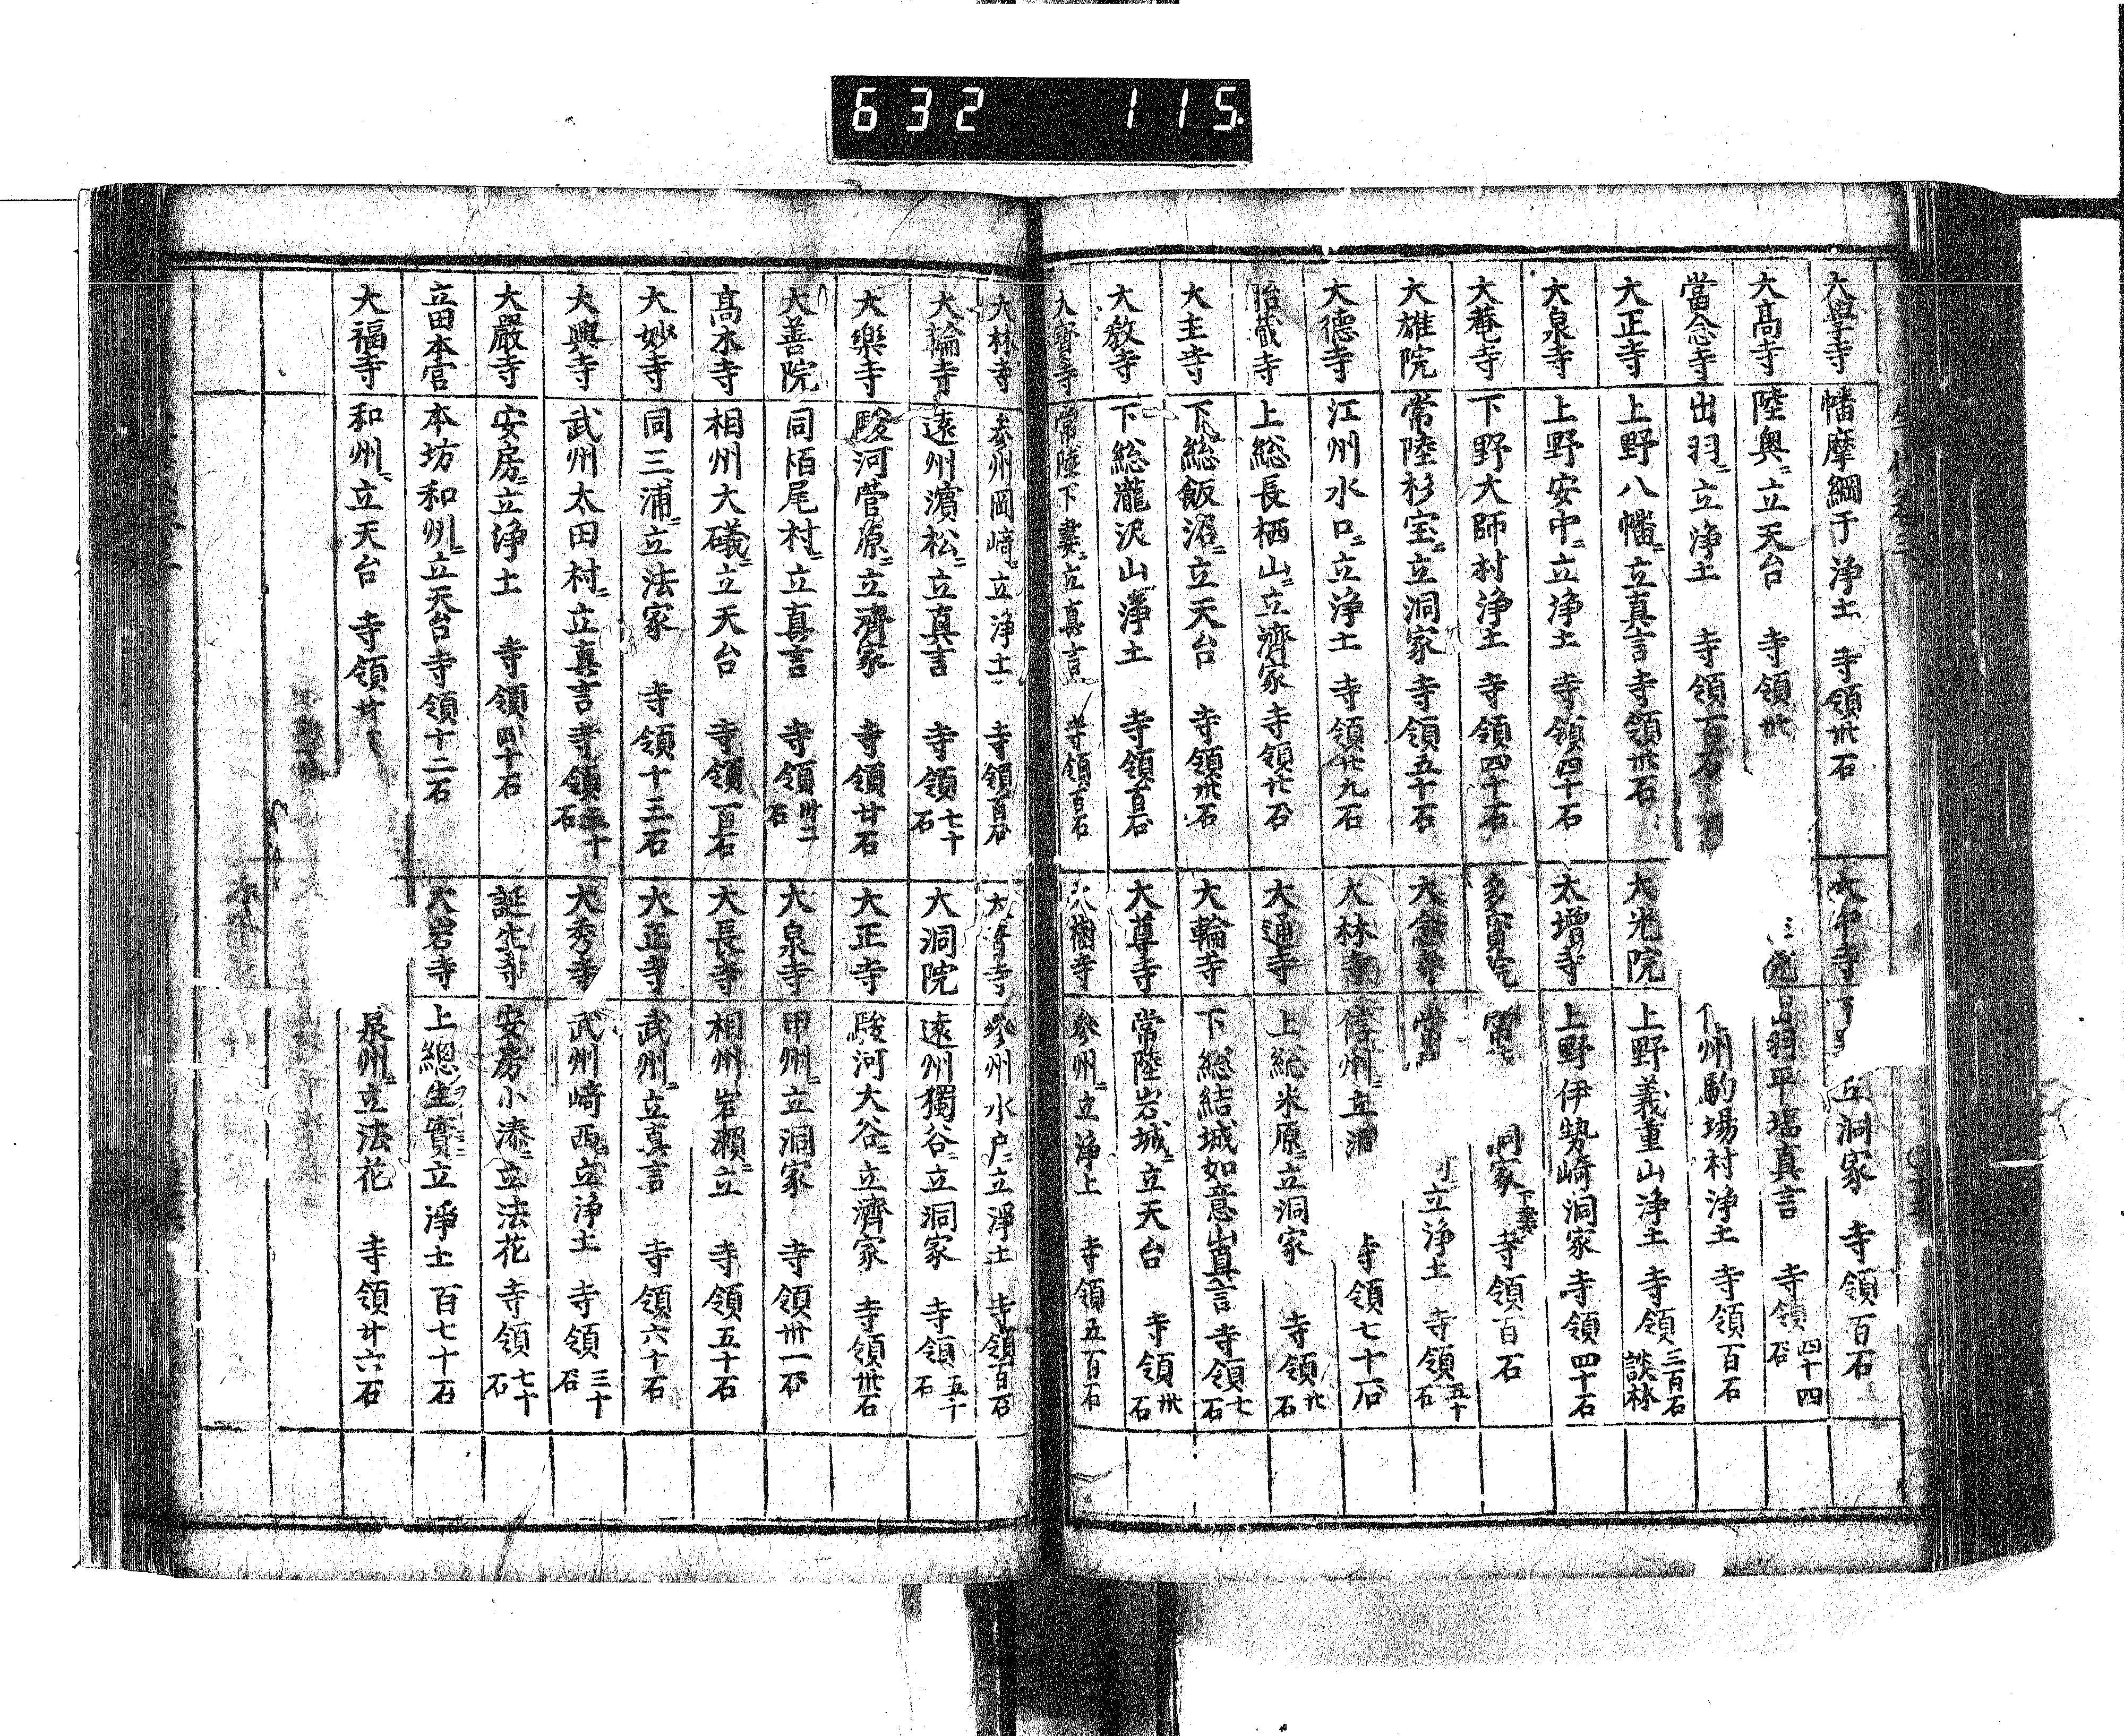 632 115.
大學寺 幡摩綱于 浄土 寺領卅石
大高寺 陸奥〻立天台 寺領卅
當念寺 出羽〻立浄土 寺領百石
大正寺 上野八幡〻立真言 寺領卅石
大泉寺 上野安中〻立浄土 寺領四十石
大菴寺 下野大師村浄土 寺領四十石
大雄院 常陸杉宝〻立洞家 寺領五十石
大德寺 江州水口〻立浄土 寺領廿九石
胎蔵寺 上総長栖山〻立濟家 寺領廿石
大主寺 下総飯沼〻立天台 寺領卅石
大教寺 下総瀧沢山浄土 寺領百石
大寳寺 常陸下妻〻立真言 寺領百石
大中寺 洞家 寺領百石
出羽平塩真言 寺領四十四石
州駒場村浄土 寺領百石
大光院 上野義重山浄土 寺領三百石 談林
太增寺 上野伊勢崎洞家 寺領四十石
多寳院 常 洞家 下妻 寺領百石
大念寺 常 立浄土 寺領五十石
大林寺 信州〻立洞 寺領七十石
大通寺 上総米原〻立洞家 寺領廿石
大輪寺 下総結城如意山真言 寺領七石
大尊寺 常陸岩城〻立天台 寺領卅石
大樹寺 參州〻立浄土 寺領五百石
大林寺 参州岡崎〻立浄土 寺領百石
大輪寺 遠州濱松〻立真言 寺領七十石
大樂寺 駿河菅原〻立濟家 寺領廿石
大善院 同栢尾村〻立真言 寺領卅二石
高木寺 相州大礒〻立天台 寺領一百石
大妙寺 同三浦〻立法家 寺領十三石
大興寺 武州太田村〻立真言 寺領三十石
大嚴寺 安房〻立浄土 寺領四十石
立田本宮 本坊和州〻立天台 寺領十二石
大福寺 和州〻立天台 寺領廿
寺 參州水戸〻立淨土 寺領百石
大洞院 遠州獨谷〻立洞家 寺領五十石
大正寺 駿河大谷〻立濟家 寺領卅石
大泉寺 甲州〻立洞家 寺領卅一石
大長寺 相州岩瀬〻立 寺領五十石
大正寺 武州〻立真言 寺領六十石
大秀寺 武州崎西〻立浄土 寺領三十石
誕生寺 安房小湊〻立法花 寺領七十石
大岩寺 上總生實〻立淨土 百七十石
泉州〻立法花 寺領廿六石